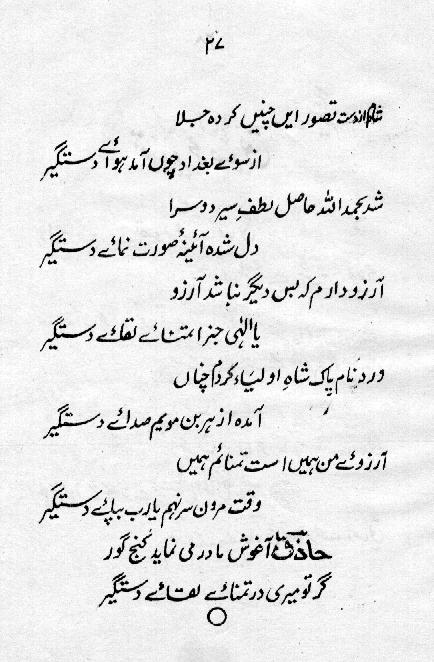 ۲۷
تصور ایں چنیں کردہ جلا
از سوئے بغداد چوں آمد ہوائے دستگیر
شد بحمد اللہ حاصل لطفِ سیر دوسرا
دل شدہ آئینۂ صورت نمائے دستگیر
آرزو دارم کہ بس دیگر نباشد آرزو
یا الٰہی جز تمنائے لقائے دستگیر
ورد نام پاک شاہِ اولیاء کردم چناں
آمدہ از ہر بن مویم صدائے دستگیر
آرزوئے من ہمیں است تمنائم ہمیں
وقت مردن سر نہم یارب بپائے دستگیر
حاذقؔا آغوش مادر می نماید کنج گور
گر تو میری در تمنائے لقائے دستگیر